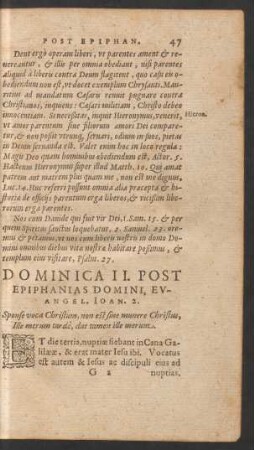 POST EPIPHAN. 47
Dent ergò operam liberi, ut parentes ament & re-
uereantur, & illis per omnia obediant, nisi parentes
aliquid à liberis contra Deum flagitent, quo casu eis o-
bediendum non est, ut docet exemplum Chrysanti. Mau-
ritius ad mandatum Cæsaris renuit pugnare contra
Christianos, inquens: Cæsari militatum, Christo debeo
innocentiam. Si necessitas, inquit Hieronymus, venerit,
ut amor parentum siue filiorum amori Dei compare-
tur, & non possit utrunq; seruari, odium in suos, pietas
in Deum seruanda est. Valet enim hoc in loco regula:
Magis Deo quam hominibus obediendum est, Actor. 5.
Hactenus Hieronymus super illud Matth. 10. Qui amat
patrem aut matrem plus quam me, non est me dignus,
Luc. 14. Huc referri possunt omnia alia præcepta & hi-
storia de officijs parentum erga liberos, & vicissim libe-
rorum erga parentes.
Hieron.
Nos cum Dauide qui fuit vir Dei, 1. Sam. 15. & per
quem spiritus sanctus loquebatur, 2. Samuel. 23. ore-
mus & petamus, ut nos cum liberis nostris in domo Do-
mini omnibus diebus vitæ nostræ habitare possimus, &
templum eius visitare, Psalm. 27.
DOMINICA II. POST
EPIPHANIAS DOMINI, EV-
ANGEL. IOAN. 2.
Sponse voca Christum, non est sine munere Christus,
Ille merum tardè, dat tamen ille merum.
ET die tertia, nuptiæ fiebant in Cana Ga-
lilææ, & erat mater Iesu ibi. Vocatus
est autem & Iesus ac discipuli eius ad
G 2 nuptias.